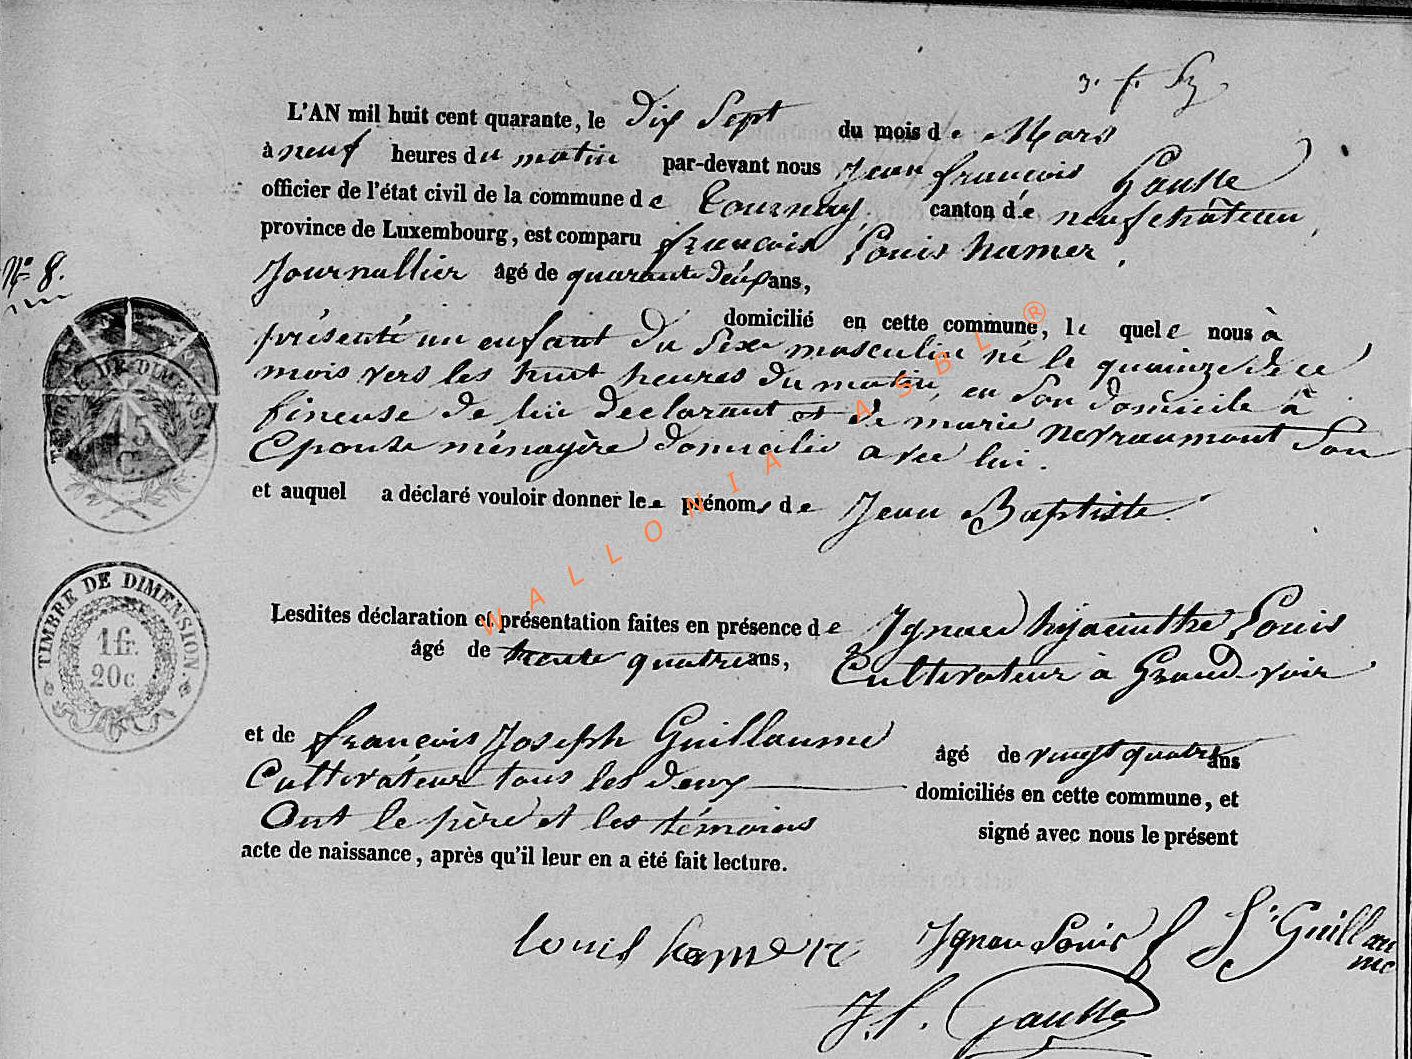 3. f. Sz
L'AN mil huit cent quarante, le Dix Sept du mois de Mars
à neuf heures du matin par-devant nous Jean françois Gausse
officier de l'état civil de la commune de Tournay, canton de neufchâteau,
province de Luxembourg, est comparu françois Louis hamer,
Journallier âgé de quarante deux ans,
domicilié en cette commune, le quele nous à
présenté un enfant du Sexe masculin né le quainze de ce
mois vers les huit heures du matin, en Son domicile à
fineuse de lui declarant et de marie nevraumont Son
Epouse ménagère domicilié avec lui.
et auquel a déclaré vouloir donner les prénoms de Jean Baptiste.
N° 8.
TIMBRE DE DIMENSION
45
C.
Lesdites déclaration et présentation faites en présence de Ignace hyacinthe Louis
âgé de trente quatre ans, Cultivateur à Grand-voir
TIMBRE DE DIMENSION.
1 fr.
20 c
et de françois Joseph Guillaume âgé de vingt quatre ans
Cultivateur tous les deux domiciliés en cette commune, et
Ont le père et les témoins signé avec nous le présent
acte de naissance, après qu'il leur en a été fait lecture.
louis hamer
Ignace Louis
f. j. Guillaume
J. f. Gausse
WALLONIA ASBL ®